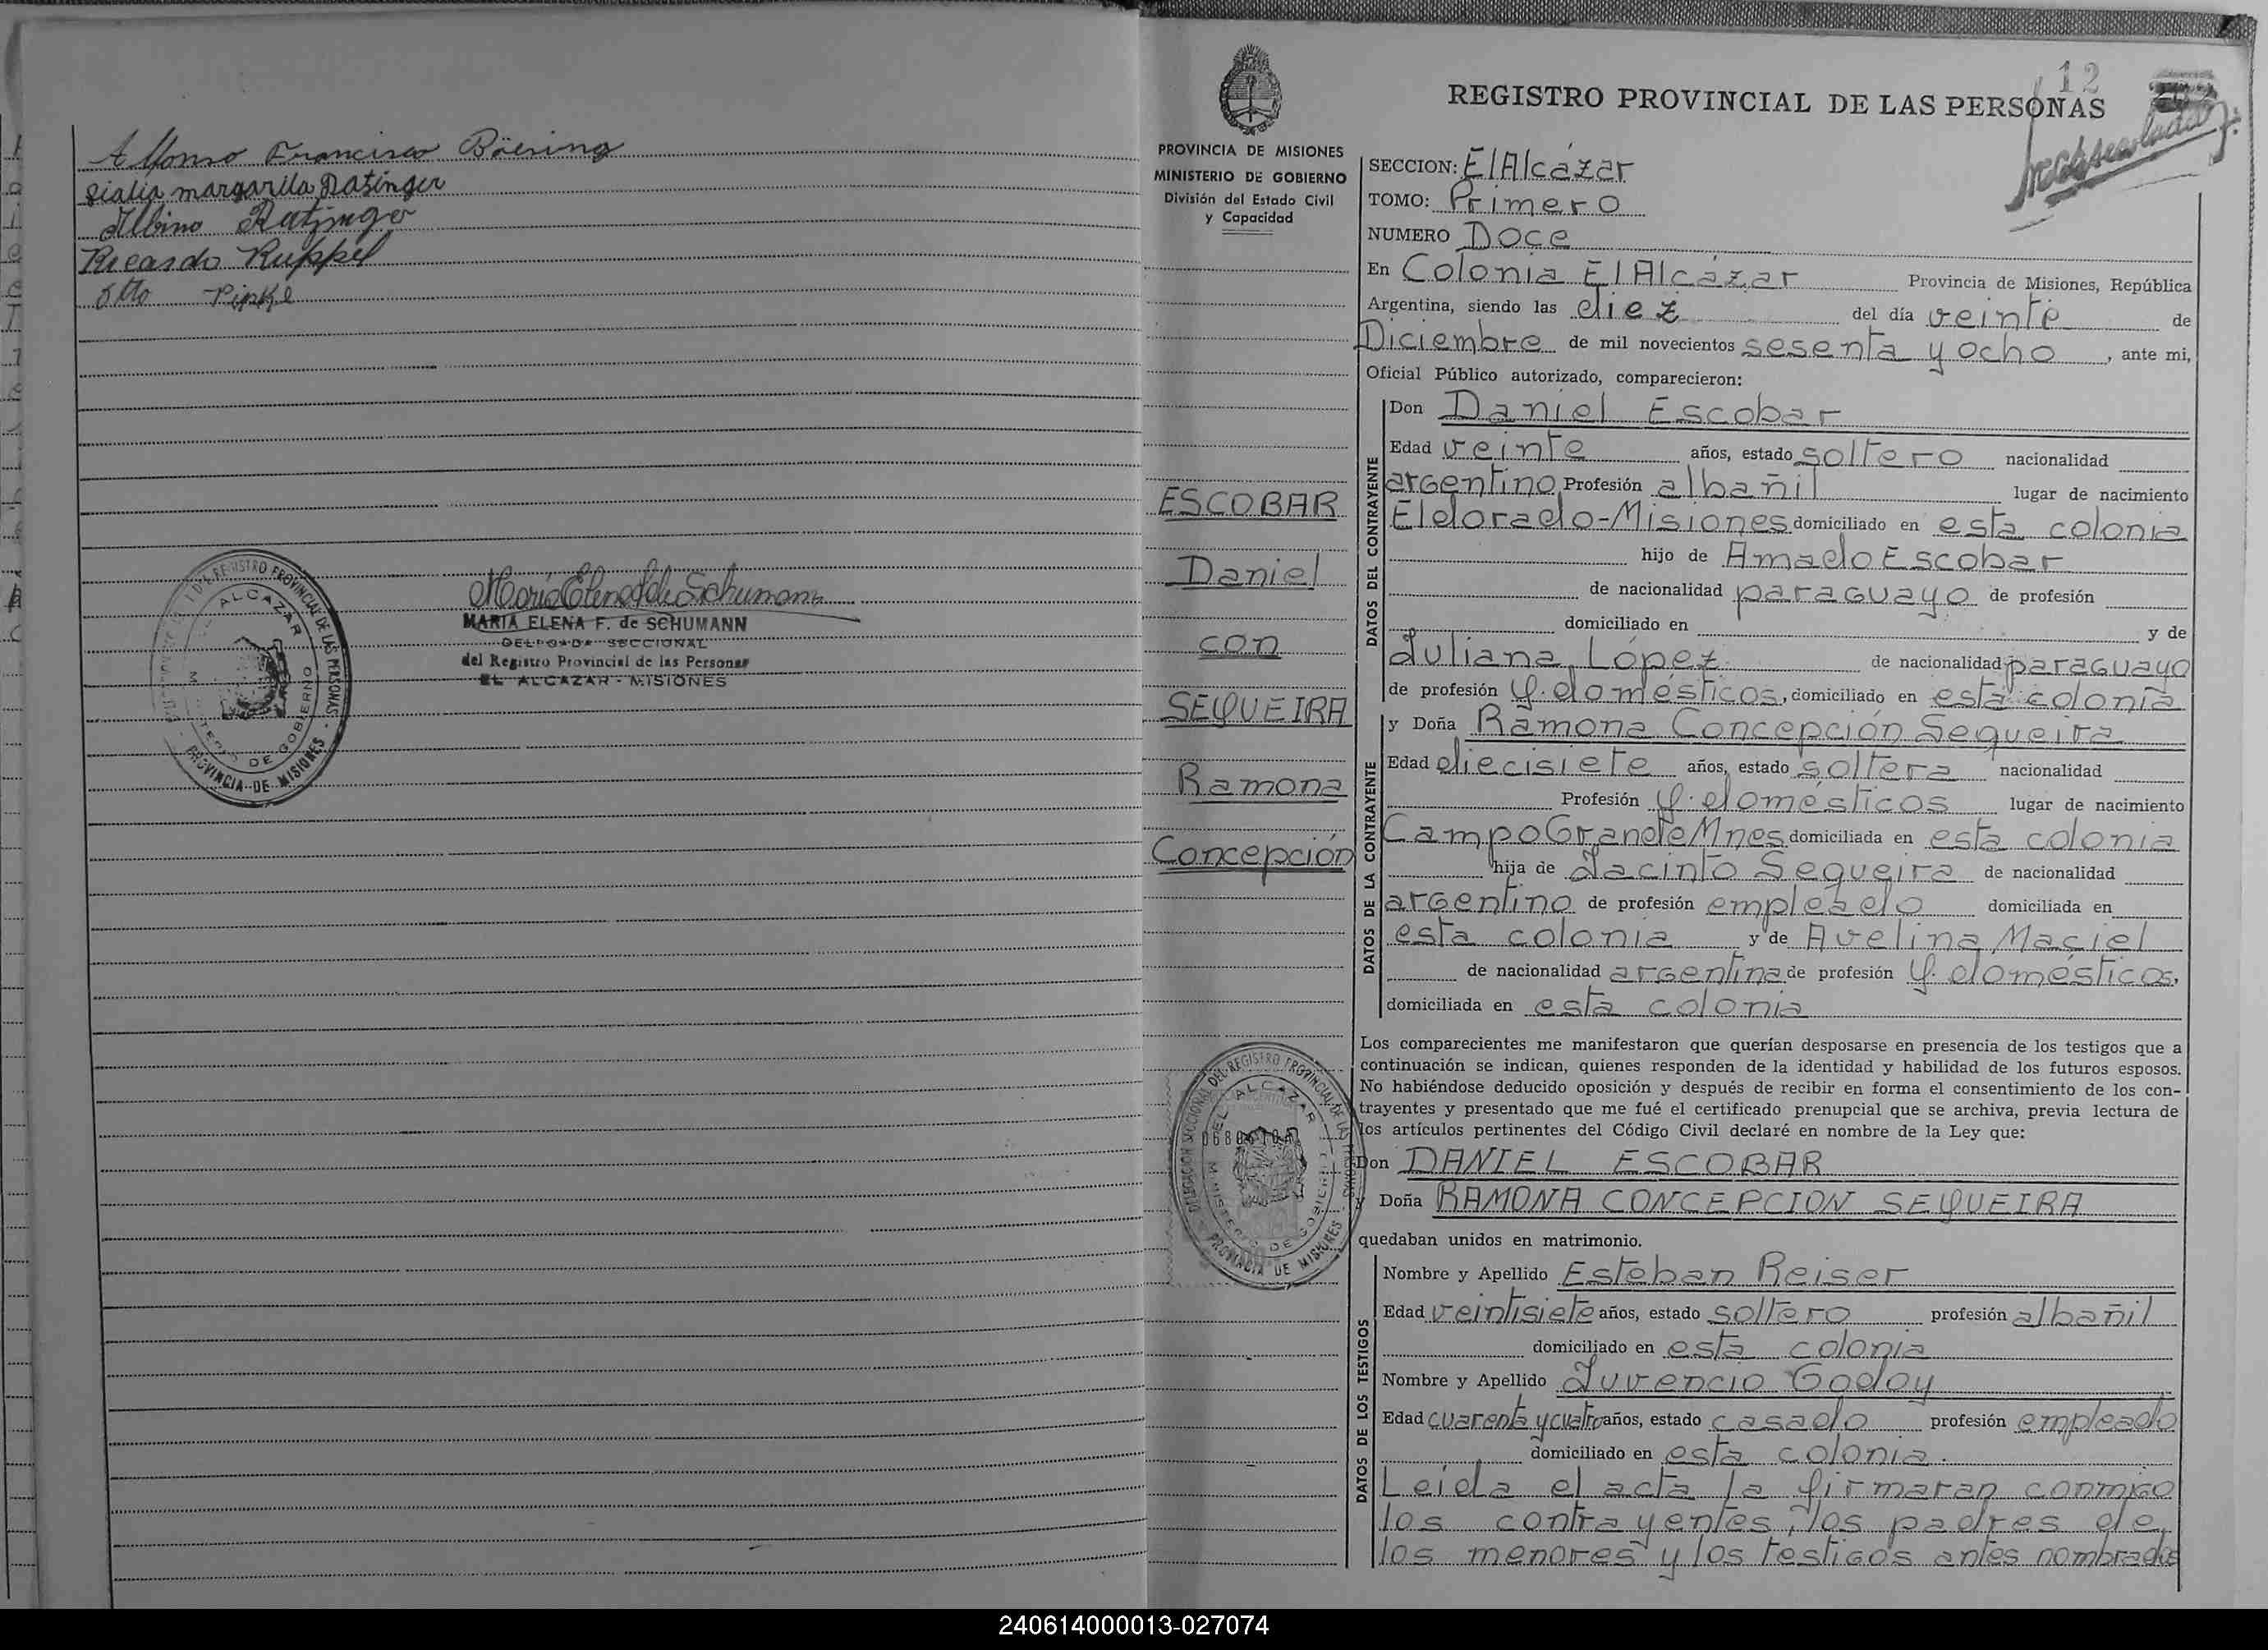 Alfonso Francisco Böering
margarita Ratzinger
Albino Ratzinger
Ricardo Ruppel
Otto Pipke
María Elena F de Schumann
MARIA ELENA F. de SCHUMANN
DELEGADA SECCIONAL
del Registro Provincial de las Personas
EL ALCAZAR - MISIONES
REGISTRO PROVINCIAL DE LAS PERSONAS
ALCAZAR
MINISTERIO DE GOBIERNO
PROVINCIA DE MISIONES
12
REGISTRO PROVINCIAL DE LAS PERSONAS
PROVINCIA DE MISIONES
MINISTERIO DE GOBIERNO
División del Estado Civil
y Capacidad
SECCION: El Alcázar
TOMO: Primero
NUMERO Doce
En Colonia El Alcázar Provincia de Misiones, República
Argentina, siendo las diez del día veinte de
Diciembre de mil novecientos sesenta y ocho, ante mi,
Oficial Público autorizado, comparecieron:
DATOS DEL CONTRAYENTE
Don Daniel Escobar
Edad veinte años, estado soltero nacionalidad
argentino Profesión albañil lugar de nacimiento
Eldorado-Misiones domiciliado en esta colonia
hijo de Amado Escobar
de nacionalidad paraguayo de profesión
domiciliado en y de
Juliana López de nacionalidad paraguayo
de profesión q. domésticos, domiciliado en esta colonia
DATOS DE LA CONTRAYENTE
y Doña Ramona Concepción Sequeira
Edad diecisiete años, estado soltera nacionalidad
Profesión q. domésticos lugar de nacimiento
Campo Grande Mnes domiciliada en esta colonia
hija de Jacinto Sequeira de nacionalidad
argentino de profesión empleado domiciliada en
esta colonia y de Avelina Maciel
de nacionalidad argentina de profesión q. domésticos,
domiciliada en esta colonia
ESCOBAR
Daniel
con
SEQUEIRA
Ramona
Concepción
Los comparecientes me manifestaron que querían desposarse en presencia de los testigos que a
continuación se indican, quienes responden de la identidad y habilidad de los futuros esposos.
No habiéndose deducido oposición y después de recibir en forma el consentimiento de los con-
trayentes y presentado que me fué el certificado prenupcial que se archiva, previa lectura de
los artículos pertinentes del Código Civil declaré en nombre de la Ley que:
Don DANIEL ESCOBAR
y Doña RAMONA CONCEPCION SEQUEIRA
quedaban unidos en matrimonio.
DELEGACION SECCIONAL DEL REGISTRO PROVINCIAL DE LAS PERSONAS
EL ALCAZAR
MINISTERIO DE GOBIERNO
PROVINCIA DE MISIONES
DATOS DE LOS TESTIGOS
Nombre y Apellido Esteban Reiser
Edad veintisiete años, estado soltero profesión albañil
domiciliado en esta colonia
Nombre y Apellido Juvencio Godoy
Edad cuarenta y cuatro años, estado casado profesión empleado
domiciliado en esta colonia.
Leida el acta la firmaran conmigo
los contrayentes, los padres de
los menores y los testigos antes nombrados
240614000013-027074